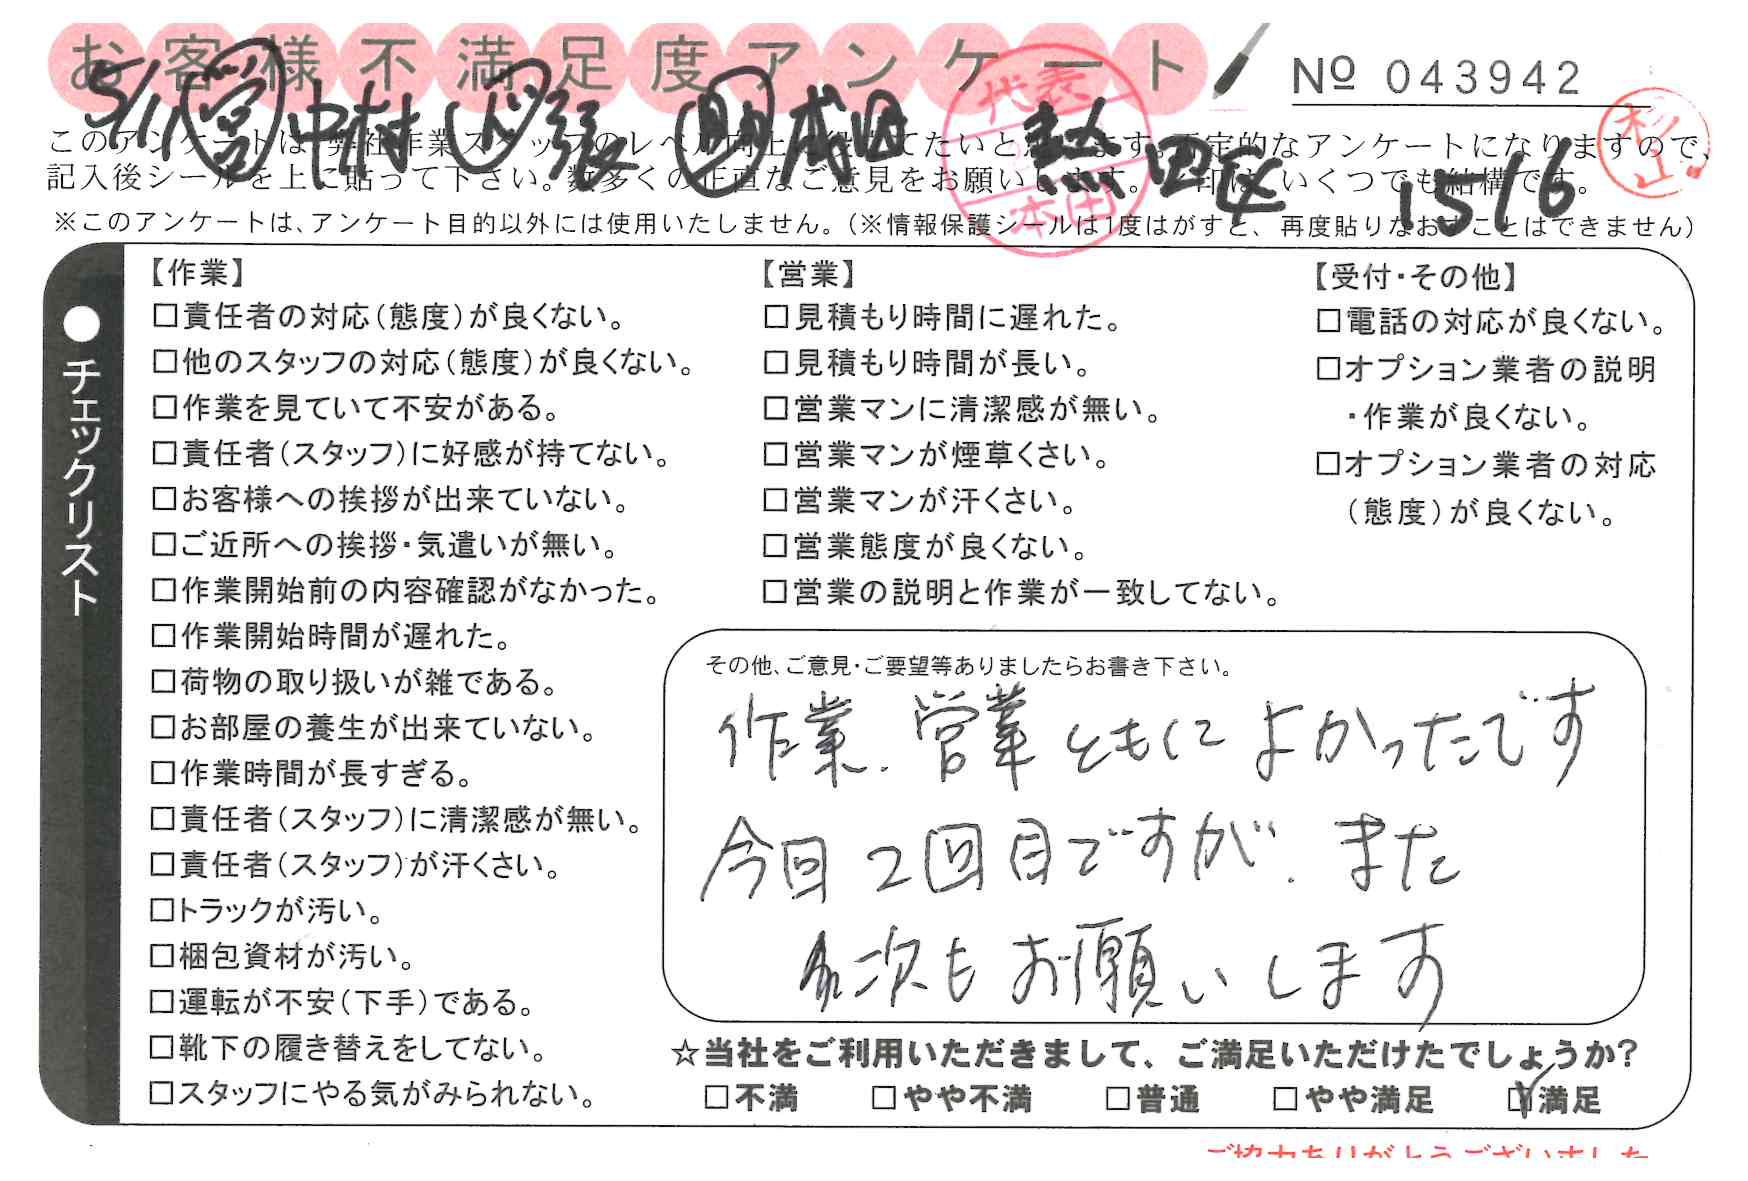 お客様不満足度アンケート
№ 043942
5/1 営 中村 ド 張 助 本田 熱田 1516
代表
本田
杉山
このアンケートは、弊社作業スタッフのレベル向上に役立てたいと思います。不定的なアンケートになりますので、
記入後シールを上に貼って下さい。数多くの正直なご意見をお願いします。✓印は、いくつでも結構です。
※このアンケートは、アンケート目的以外には使用いたしません。(※情報保護シールは1度はがすと、再度貼りなおすことはできません)
●チェックリスト
【作業】
□責任者の対応(態度)が良くない。
□他のスタッフの対応(態度)が良くない。
□作業を見ていて不安がある。
□責任者(スタッフ)に好感が持てない。
□お客様への挨拶が出来ていない。
□ご近所への挨拶・気遣いが無い。
□作業開始前の内容確認がなかった。
□作業開始時間が遅れた。
□荷物の取り扱いが雑である。
□お部屋の養生が出来ていない。
□作業時間が長すぎる。
□責任者(スタッフ)に清潔感が無い。
□責任者(スタッフ)が汗くさい。
□トラックが汚い。
□梱包資材が汚い。
□運転が不安(下手)である。
□靴下の履き替えをしてない。
□スタッフにやる気がみられない。
【営業】
□見積もり時間に遅れた。
□見積もり時間が長い。
□営業マンに清潔感が無い。
□営業マンが煙草くさい。
□営業マンが汗くさい。
□営業態度が良くない。
□営業の説明と作業が一致してない。
【受付・その他】
□電話の対応が良くない。
□オプション業者の説明
・作業が良くない。
□オプション業者の対応
(態度)が良くない。
その他、ご意見・ご要望等ありましたらお書き下さい。
作業、営業ともによかったです
今回2回目ですが、また
次もお願いします
☆当社をご利用いただきまして、ご満足いただけたでしょうか?
□不満 □やや不満 □普通 □やや満足 ☑満足
ご協力ありがとうございました